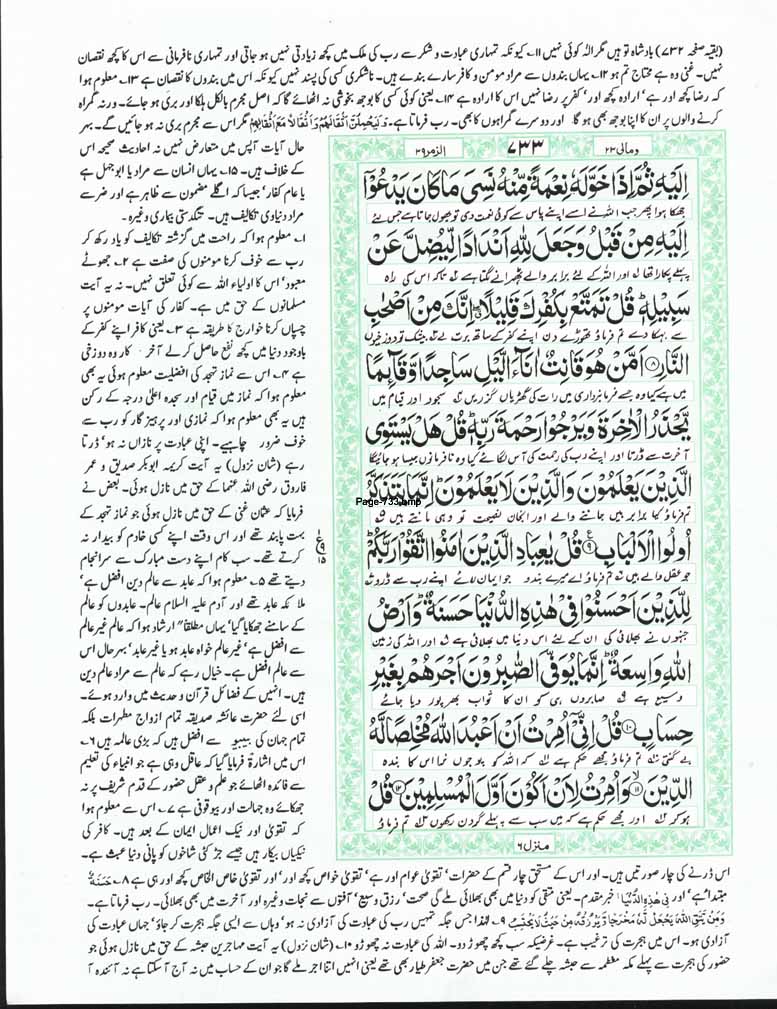 (بقیہ صفحہ ۷۳۲) بادشاہ تو ہیں مگر الٰہ کوئی نہیں ۱۱۔ کیونکہ تمہاری عبادت و شکر سے رب کی ملک میں کچھ زیادتی نہیں ہو جاتی اور تمہاری نافرمانی سے اس کا کچھ نقصان
نہیں۔ غنی وہ ہے محتاج تم ہو ۱۲۔ یہاں بندوں سے مراد مومن و کافر سارے بندے ہیں۔ ناشکری کسی کی پسند نہیں کیونکہ اس میں بندوں کا نقصان ہے ۱۳۔ معلوم ہوا
کہ رضا کچھ اور ہے' ارادہ کچھ اور' کفر پر رضا نہیں اس کا ارادہ ہے ۱۴۔ یعنی کوئی کسی کا بوجھ بخوشی نہ اٹھائے گا کہ اصل مجرم بالکل ہلکا اور بری ہو جائے۔ ورنہ گمراہ
کرنے والوں پر ان کا اپنا بوجھ بھی ہو گا اور دوسرے گمراہوں کا بھی۔ رب فرماتا ہے۔ وَلَيَحْمِلُنَّ أَثْقَالَهُمْ وَأَثْقَالًا مَّعَ أَثْقَالِهِمْ مگر اس سے مجرم بری نہ ہو جائیں گے۔ بہر
ومالی ۲۳
۷۳۳
الزمر ۳۹
اِلَيْهِ ثُمَّ اِذَا خَوَّلَهٗ نِعْمَةً مِّنْهُ نَسِىَ مَا كَانَ يَدْعُوْٓا
جھکا ہوا پھر جب اللہ نے اسے اپنے پاس سے کوئی نعمت دی تو بھول جاتا ہے جس لئے
اِلَيْهِ مِنْ قَبْلُ وَجَعَلَ لِلّٰهِ اَنْدَادًا لِّيُضِلَّ عَنْ
پہلے پکارا تھا اور اللہ کے لئے برابر والے ٹھہرانے لگتا ہے تاکہ اس کی راہ
سَبِيْلِهٖ قُلْ تَمَتَّعْ بِكُفْرِكَ قَلِيْلًا اِنَّكَ مِنْ اَصْحٰبِ
سے بہکا دے تم فرماؤ تھوڑے دن اپنے کفر کے ساتھ برت لے بیشک تو دوزخیوں
النَّارِ ﴿۸﴾ اَمَّنْ هُوَ قَانِتٌ اٰنَآءَ الَّيْلِ سَاجِدًا وَّقَآئِمًا
میں ہے کیا وہ جسے فرمانبرداری میں رات کی گھڑیاں گزریں سجود اور قیام میں
يَّحْذَرُ الْاٰخِرَةَ وَيَرْجُوْا رَحْمَةَ رَبِّهٖ قُلْ هَلْ يَسْتَوِى
آخرت سے ڈرتا اور اپنے رب کی رحمت کی آس لگائے کیا وہ نافرمانوں جیسا ہو جائیگا
الَّذِيْنَ يَعْلَمُوْنَ وَالَّذِيْنَ لَا يَعْلَمُوْنَ اِنَّمَا يَتَذَكَّرُ
تم فرماؤ کیا برابر ہیں جاننے والے اور انجان نصیحت تو وہی مانتے ہیں
Page-733.bmp
اُولُوا الْاَلْبَابِ ﴿۹﴾ قُلْ يٰعِبَادِ الَّذِيْنَ اٰمَنُوا اتَّقُوْا رَبَّكُمْ
جو عقل والے ہیں تم فرماؤ اے میرے بندو جو ایمان لائے اپنے رب سے ڈرو
لِلَّذِيْنَ اَحْسَنُوْا فِىْ هٰذِهِ الدُّنْيَا حَسَنَةٌ وَاَرْضُ
جنہوں نے بھلائی کی ان کے لئے اس دنیا میں بھلائی ہے اور اللہ کی زمین
اللّٰهِ وَاسِعَةٌ اِنَّمَا يُوَفَّى الصّٰبِرُوْنَ اَجْرَهُمْ بِغَيْرِ
وسیع ہے صابروں ہی کو ان کا ثواب بھرپور دیا جائے
حِسَابٍ ﴿۱۰﴾ قُلْ اِنِّىْٓ اُمِرْتُ اَنْ اَعْبُدَ اللّٰهَ مُخْلِصًا لَّهُ
بے گنتی تم فرماؤ مجھے حکم ہے کہ اللہ کو پوجوں نرا اس کا بندہ
الدِّيْنَ ﴿۱۱﴾ وَاُمِرْتُ لِاَنْ اَكُوْنَ اَوَّلَ الْمُسْلِمِيْنَ ﴿۱۲﴾ قُلْ
ہو کر اور مجھے حکم ہے کہ میں سب سے پہلے گردن رکھوں تم فرماؤ
منزل ۶
ع ۹ ۱۵
حال آیات آپس میں متعارض نہیں نہ احادیث صحیحہ اس
کے خلاف ہیں۔ ۱۵۔ یہاں انسان سے مراد یا ابوجہل ہے
یا عام کفار' جیسا کہ اگلے مضمون سے ظاہر ہے اور ضر سے
مراد دنیاوی تکالیف ہیں۔ تنگدستی بیماری وغیرہ۔
۱۔ معلوم ہوا کہ راحت میں گزشتہ تکالیف کو یاد رکھ کر
رب سے خوف کرنا مومنوں کی صفت ہے ۲۔ جھوٹے
معبود' اس کا اولیاء اللہ سے کوئی تعلق نہیں۔ نہ یہ آیت
مسلمانوں کے حق میں ہے۔ کفار کی آیات مومنوں پر
چسپاں کرنا خوارج کا طریقہ ہے ۳۔ یعنی کافر اپنے کفر کے
باوجود دنیا میں کچھ نفع حاصل کر لے آخر کار وہ دوزخی
ہے ۴۔ اس سے نماز تہجد کی افضلیت معلوم ہوئی یہ بھی
معلوم ہوا کہ نماز میں قیام اور سجدہ اعلیٰ درجہ کے رکن
ہیں یہ بھی معلوم ہوا کہ نمازی اور پرہیز گار کو رب سے
خوف ضرور چاہیے۔ اپنی عبادت پر نازاں نہ ہو' ڈرتا
رہے (شان نزول) یہ آیت کریمہ ابوبکر صدیق و عمر
فاروق رضی اللہ عنہما کے حق میں نازل ہوئی۔ بعض نے
فرمایا کہ عثمان غنی کے حق میں نازل ہوئی جو نماز تہجد کے
بہت پابند تھے اور اس وقت اپنے کسی خادم کو بیدار نہ
کرتے تھے۔ سب کام اپنے دست مبارک سے سرانجام
دیتے تھے ۵۔ معلوم ہوا کہ عابد سے عالم دین افضل ہے'
ملائکہ عابد تھے اور آدم علیہ السلام عالم۔ عابدوں کو عالم
کے سامنے جھکایا گیا' یہاں مطلقاً ارشاد ہوا کہ عالم غیر عالم
سے افضل ہے' غیر عالم خواہ عابد ہو یا غیر عابد' بہرحال اس
سے عالم افضل ہے۔ خیال رہے کہ عالم سے مراد عالم دین
ہیں۔ انہیں کے فضائل قرآن و حدیث میں وارد ہوئے۔
اسی لئے حضرت عائشہ صدیقہ تمام ازواج مطہرات بلکہ
تمام جہان کی بیبیوں سے افضل ہیں کہ بڑی عالمہ ہیں ۶۔
اس میں اشارۃً فرمایا گیا کہ عاقل وہی ہے جو انبیاء کی تعلیم
سے فائدہ اٹھائے جو علم و عقل حضور کے قدم شریف پر نہ
جھکائے وہ جہالت اور بیوقوفی ہے ۷۔ اس سے معلوم ہوا
کہ تقویٰ اور نیک اعمال ایمان کے بعد ہیں۔ کافر کی
نیکیاں بیکار ہیں جیسے جڑ کٹی شاخوں کو پانی دینا عبث ہے۔
اس ڈرنے کی چار صورتیں ہیں۔ اور اس کے مستحق چار قسم کے حضرات' تقویٰ عوام اور ہے' تقویٰ خواص کچھ اور' اور تقویٰ خاص الخاص کچھ اور ہی ہے ۸۔ حَسَنَةٌ
مبتدا ہے' اور فِي هٰذِهِ الدُّنْيَا خبر مقدم۔ یعنی متقی کو دنیا میں بھی بھلائی ملے گی صحت' رزق وسیع' آفتوں سے نجات وغیرہ اور آخرت میں بھی بھلائی۔ رب فرماتا ہے۔
وَمَنْ يَّتَّقِ اللّٰهَ يَجْعَلْ لَّهٗ مَخْرَجًا وَّيَرْزُقْهُ مِنْ حَيْثُ لَا يَحْتَسِبُ ۹۔ لہٰذا جس جگہ تمہیں رب کی عبادت کی آزادی نہ ہو' وہاں سے ایسی جگہ ہجرت کر جاؤ' جہاں عبادت کی
آزادی ہو۔ اس میں ہجرت کی ترغیب ہے۔ غرضیکہ سب کچھ چھوڑ دو۔ اللہ کی عبادت نہ چھوڑو ۱۰۔ (شان نزول) یہ آیت مہاجرین حبشہ کے حق میں نازل ہوئی جو
حضور کی ہجرت سے پہلے مکہ معظمہ سے حبشہ چلے گئے تھے جن میں حضرت جعفر طیار بھی تھے یعنی انہیں اتنا اجر ملے گا جو ان کے حساب میں نہ آج آ سکتا ہے نہ آئندہ آ